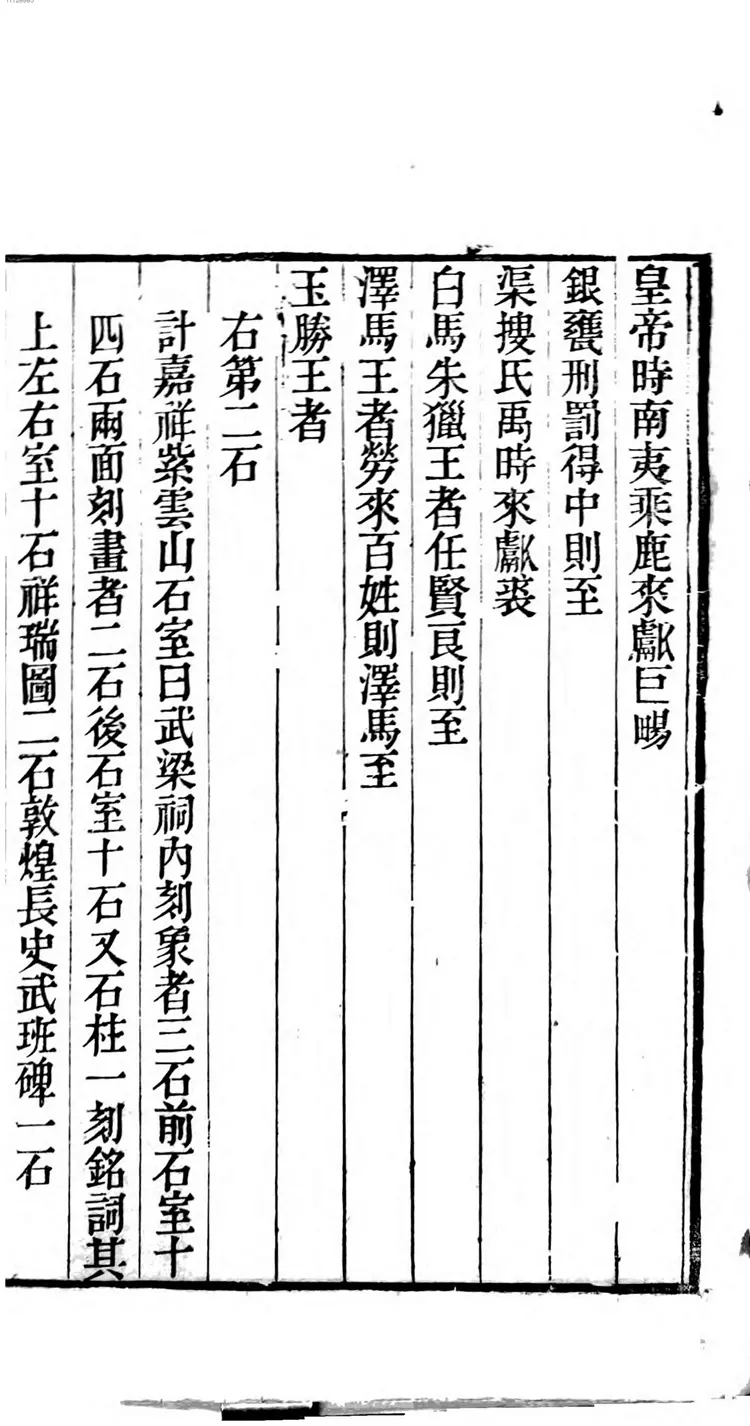 皇帝時南夷乘鹿來獻巨暢
銀甕刑罰得中則至
渠搜氏禹時來獻裘
白馬朱獵王者任賢良則至
澤馬王者勞來百姓則澤馬至
玉勝王者
右第二石
計嘉祥紫雲山石室曰武梁祠內刻象者三石前石室十
四石兩面刻畫者二石後石室十石又石柱一刻銘詞其
上左右室十石祥瑞圖二石敦煌長史武班碑一石